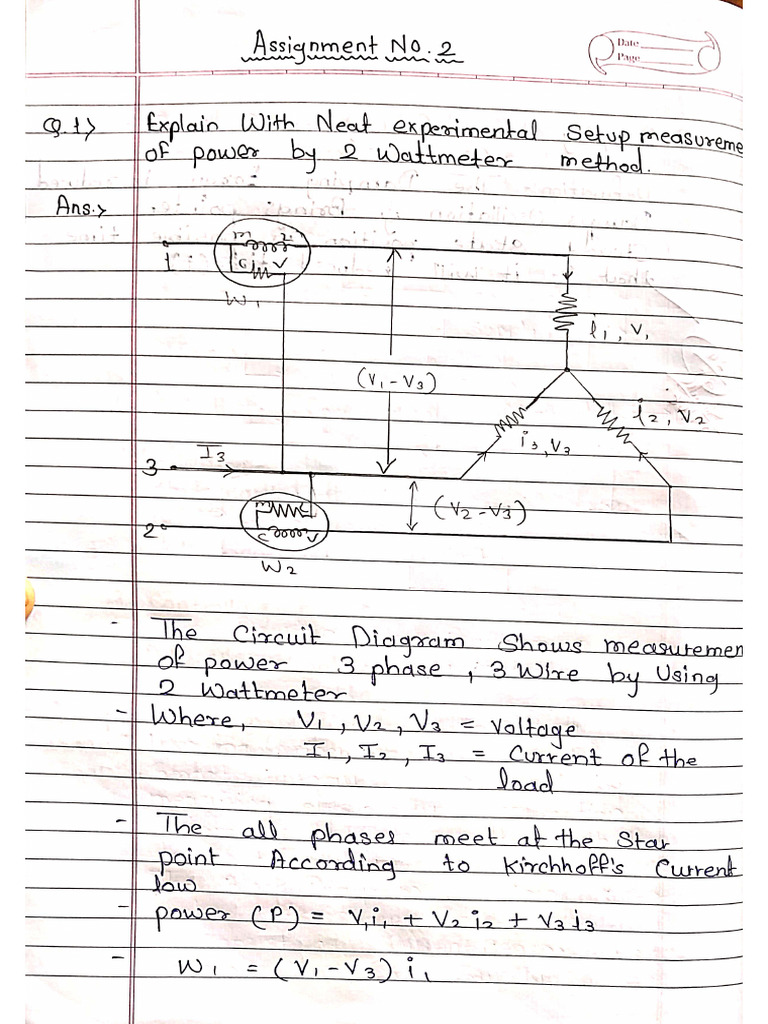 Assignment No. 2
Date
Page
Q.1> Explain With Neat experimental Setup measureme
of power by 2 Wattmeter method.
Ans.>
m L
1 C V
W1
i1, V1
(V1-V3)
i2, V2
i3, V3
I3
3
(V2-V3)
2 C V
W2
- The Circuit Diagram Shows measuremen
of power 3 phase, 3 Wire by Using
2 Wattmeter
- Where, V1, V2, V3 = Voltage
I1, I2, I3 = Current of the
load
- The all phases meet at the Star
point According to Kirchhoff's Current
low
- power (P) = V1i1 + V2 i2 + V3 i3
- W1 = (V1-V3) i1